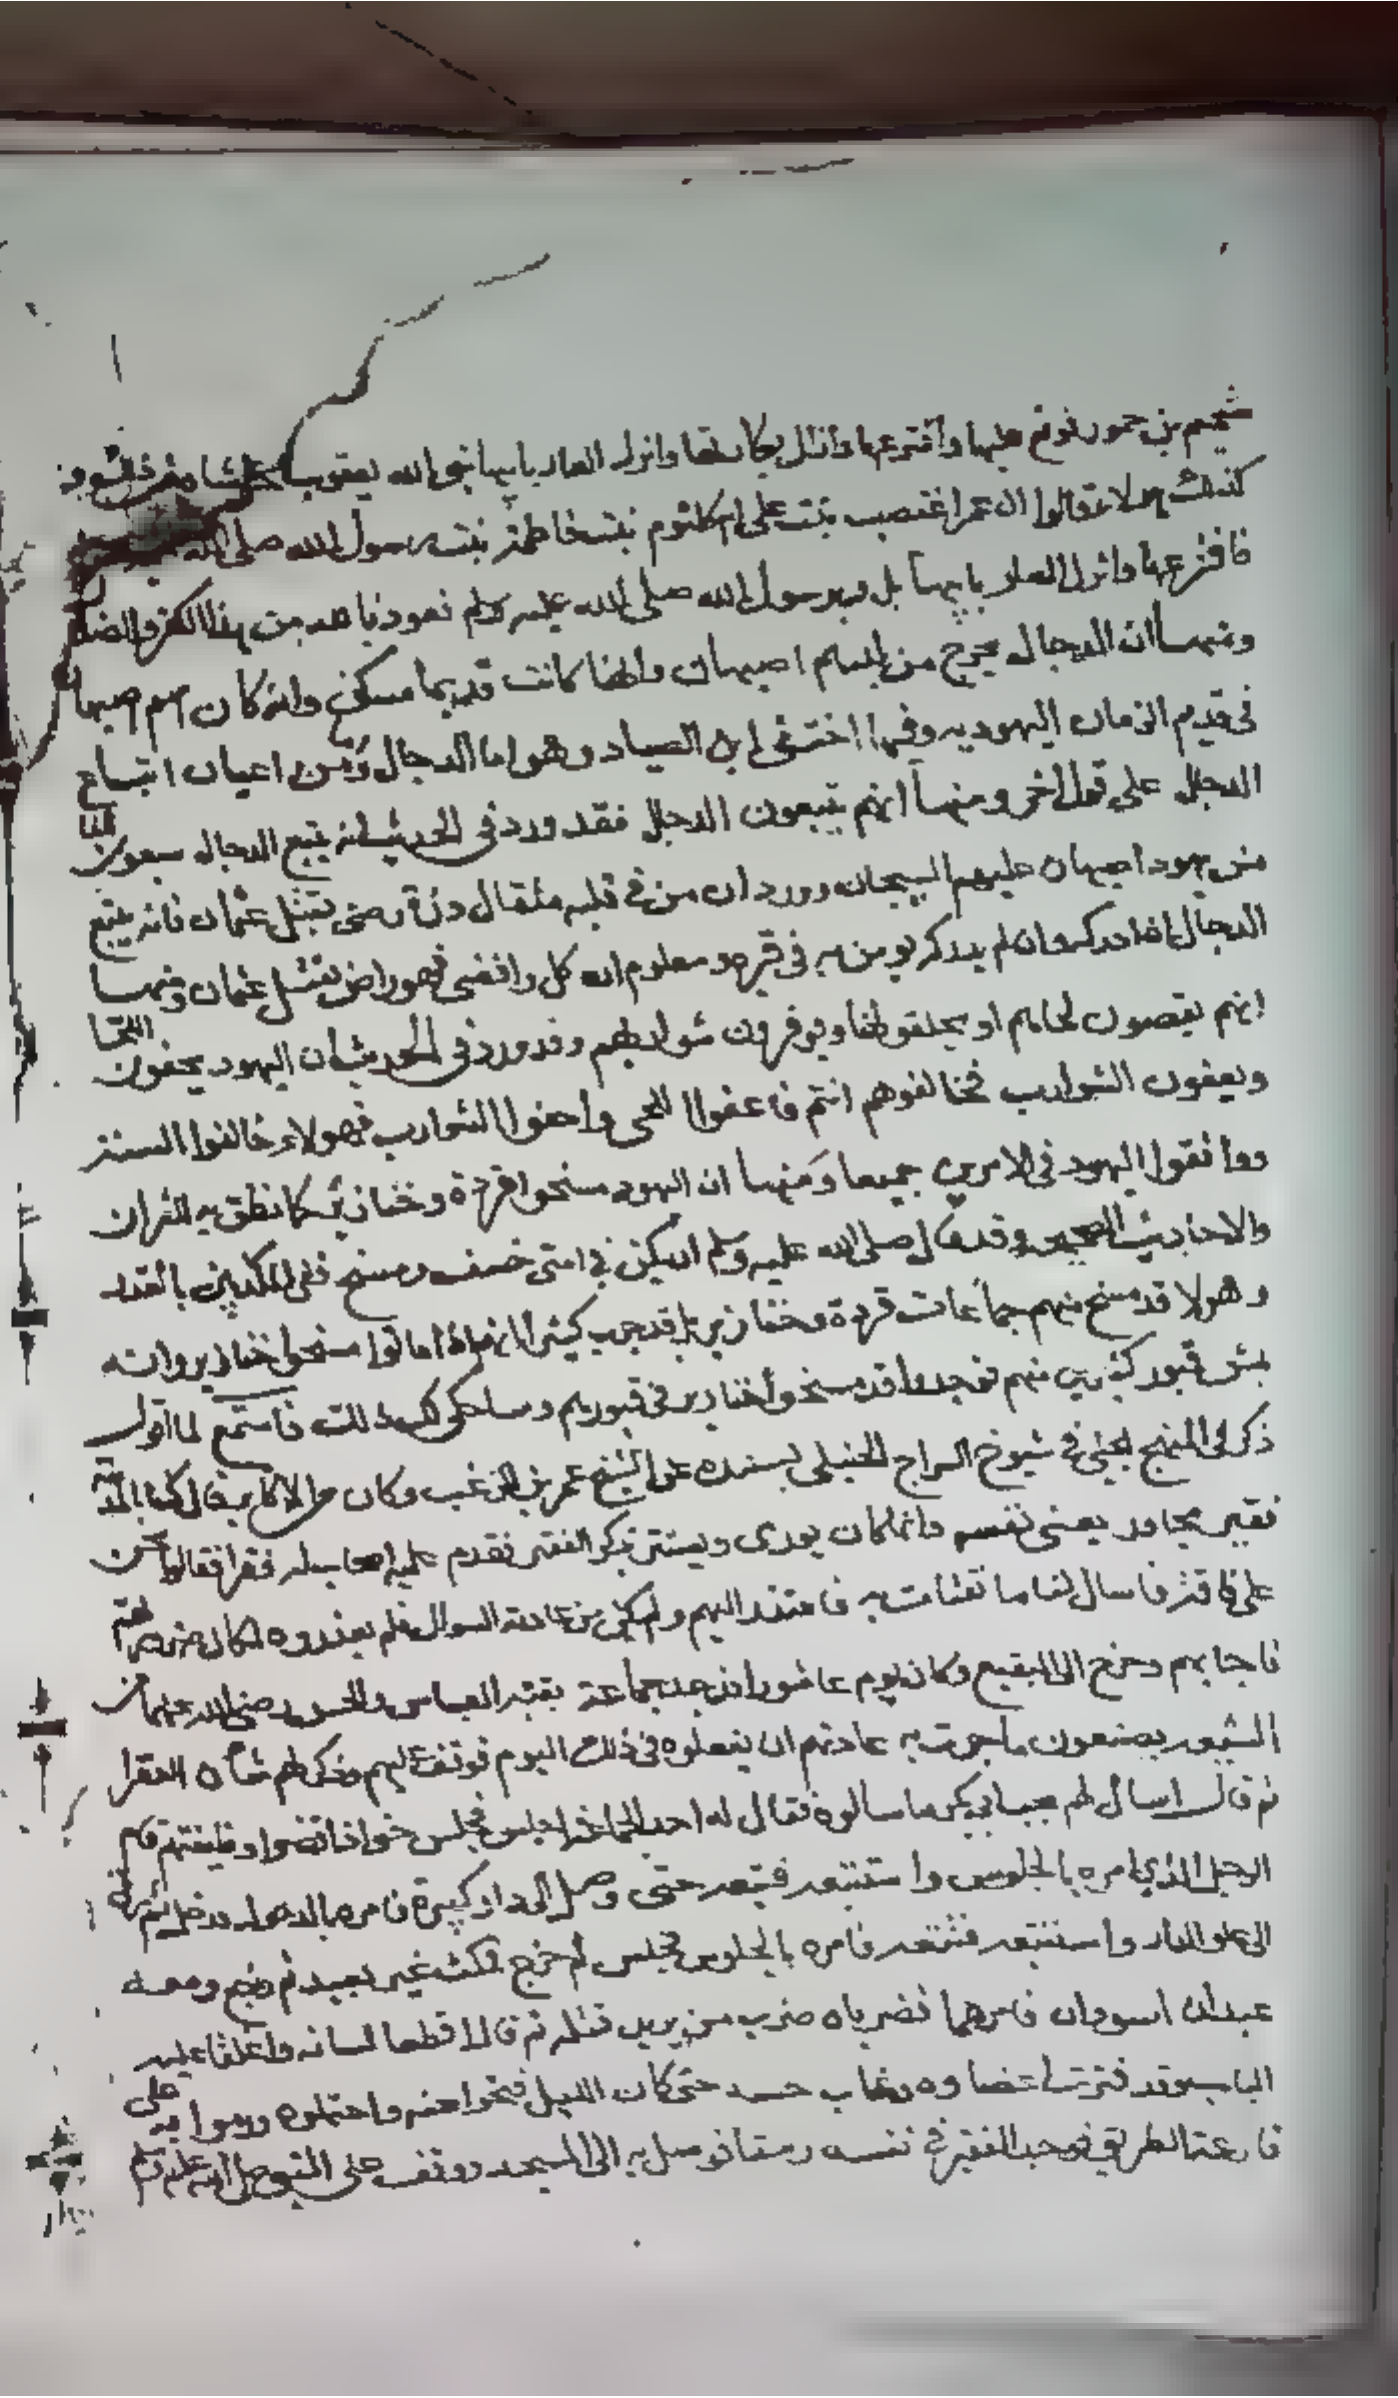 شحيم بن حمور فوقع عليها وافترعها وانزل بكارتها وانزل العار بابيها نبي الله يعقوب
كذلك هولا قالوا ان عمر اغتصب بنت علي ام كلثوم بنت فاطمة بنت رسول الله صلى الله
فافترعها وانزل العار بابيها بل وبرسول الله صلى الله عليه وسلم نعوذ بالله من هذا الكفر والضلا
ومنها ان الدجال يخرج من اصبهان وانها كانت قديما مسكن وانه كان اسم اصبهان
في قديم الزمان اليهودية وفيها اختفى ابن الصياد وهو اما الدجال او من اعيان اتباع
الدجال على قول اخر ومنها انهم يتبعون الدجال فقد ورد في الحديث انه يتبع الدجال سبعون الفا
من يهود اصبهان عليهم السيجان وورد ان من في قلبه مثقال ذرة رضى بقتل عثمان فانه يتبع
الدجال اذا ادركه وان لم يدركه يومن به في قبره ومعلوم ان كل رافضي فهو راض بقتل عثمان ومنها
انهم يقصون لحاهم او يحلقونها ويوفرون شواربهم وقد ورد في الحديث ان اليهود يحفون اللحا
ويعفون الشوارب فخالفوهم انتم فاعفوا اللحى واحفوا الشوارب فهولاء خالفوا السنة
ووافقوا اليهود في الامرين جميعا ومنها ان اليهود مسخوا قردة وخنازير كما نطق به القران
والاحاديث الصحيحة وقد قال صلى الله عليه وسلم ان يكن في امتي خسف ومسخ ففي المكذبين بالقدر
وهولا قد مسخ منهم جماعات قردة وخنازير بل قد جرب كثيرا انهم اذا ماتوا مسخوا خنازير وانه
نبش قبور كثيرين منهم فوجدوا قد مسخوا خنازير في قبورهم وساحكي لك ذلك فاستمع لما اقول
ذكر في المنهج في شيوخ السراج الحنبلي بسنده عن الشيخ عمر بن الزغب وكان من الاكابر قال كنا بالمدينة
فقير مجاور يعني نفسه وانما كان يوري ويستتر بذكر الفقير فقدم عليه اصحاب له فقرا فقالوا نحن
على فاقة فاسال لنا ما نقتات به فاعتذر اليهم ولم يكن من عادته السوال فلم يعذروه لمكان ضرورتهم
فاجابهم وخرج الى البقيع وكان يوم عاشورا فوجد جماعة بقبة العباس والحسن رضي الله عنهما من
الشيعة يصنعون ما جرت به عادتهم ان يفعلوه في ذلك اليوم فوقف اليهم وذكر لهم شان الفقرا
ثم قال اسال لهم بحب ابي بكر ما سالوه فقال له احد الجماعة اجلس فجلس حتى اذا قضوا وظيفتهم قام
الرجل الذي امره بالجلوس واستتبعه فتبعه حتى وصل الى دار كبيرة فامره بالدخول فدخل ثم
الى علو الدار واستتبعه فتبعه فامره بالجلوس فجلس ثم خرج فمكث غير بعيد ثم رجع ومعه
عبدان اسودان فامرهما فضرباه ضرب من يريد قتله ثم قال اقطعا لسانه واغلقا عليه
الباب وقد فترت اعضاوه وغاب حسه حتى كان الليل فتحوا عنه واحتملوه ورموا به على
قارعة الطريق فوجد الفقير في نفسه رمقا فوصل به الى المسجد ووقف على النبي صلى الله عليه وسلم